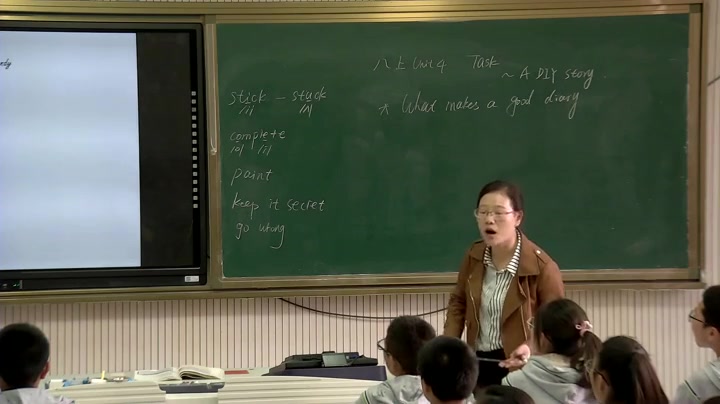 八上 Unit 4 Task
~ A DIY story.
* What makes a good diary
stick — stuck
/ɪ/ /ʌ/
complete
/ə/ /iː/
paint
keep it secret
go wrong